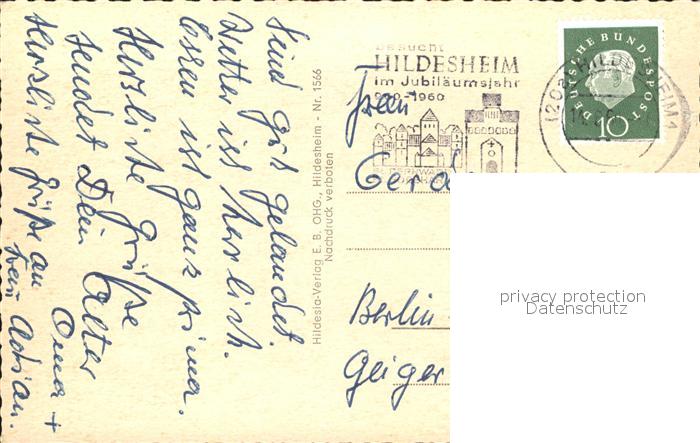 Sind gut gelandet
Wetter ist herrlich.
Essen ist ganz prima.
Herzliche Grüße
sendet Dein Alter
Herzliche Grüße an Oma +
Frau Adrian.
Hildesia-Verlag E. B. OHG., Hildesheim - Nr. 1566
Nachdruck verboten
besucht
HILDESHEIM
im Jubiläumsjahr
-1960
DEUTSCHE BUNDESPOST
10
HILDESHEIM
Frau
Berlin
Geiger
privacy protection
Datenschutz